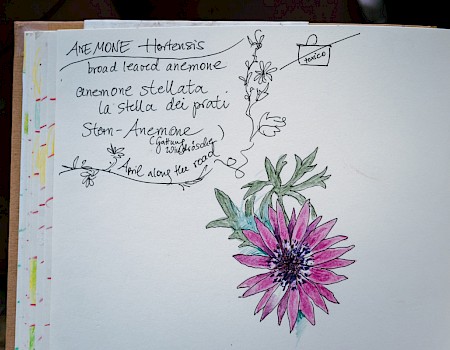 ANEMONE Hortensis
broad leaved anemone
anemone stellata
la stella dei prati
Stern-Anemone
(Gattung
Windröschen)
April along the road
toxico